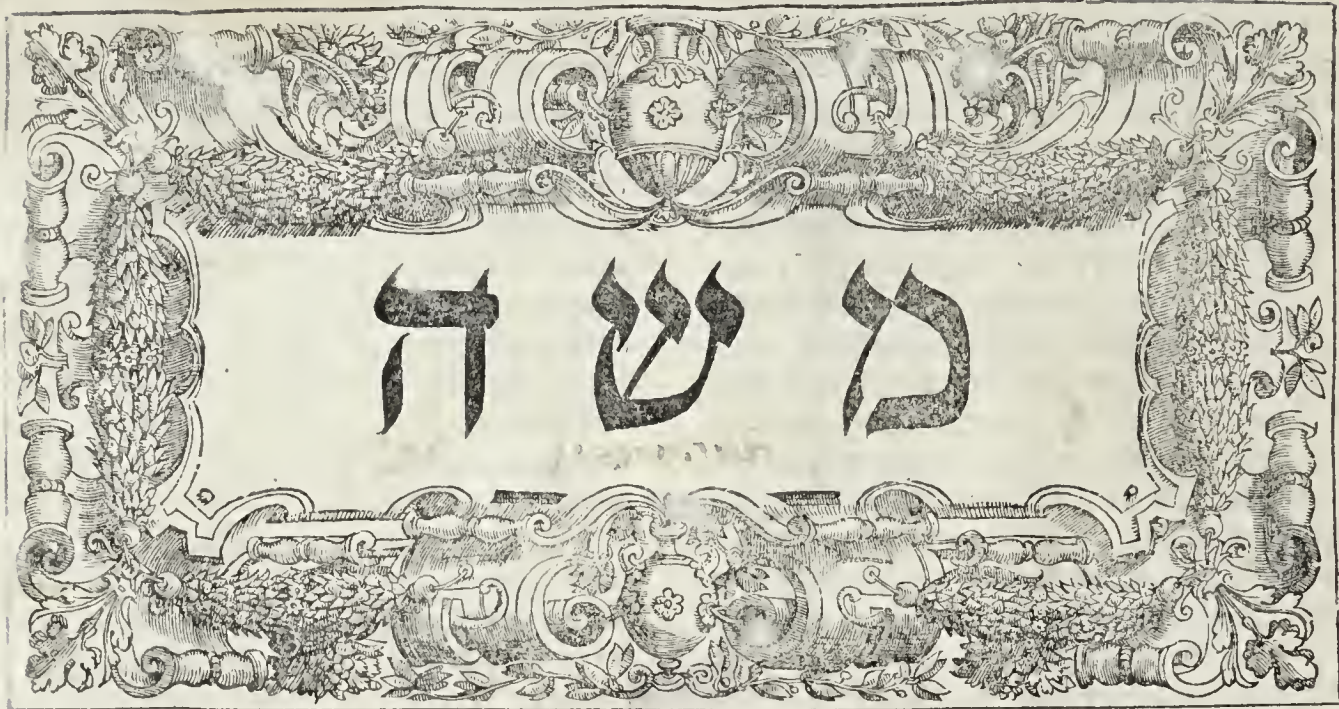 משה